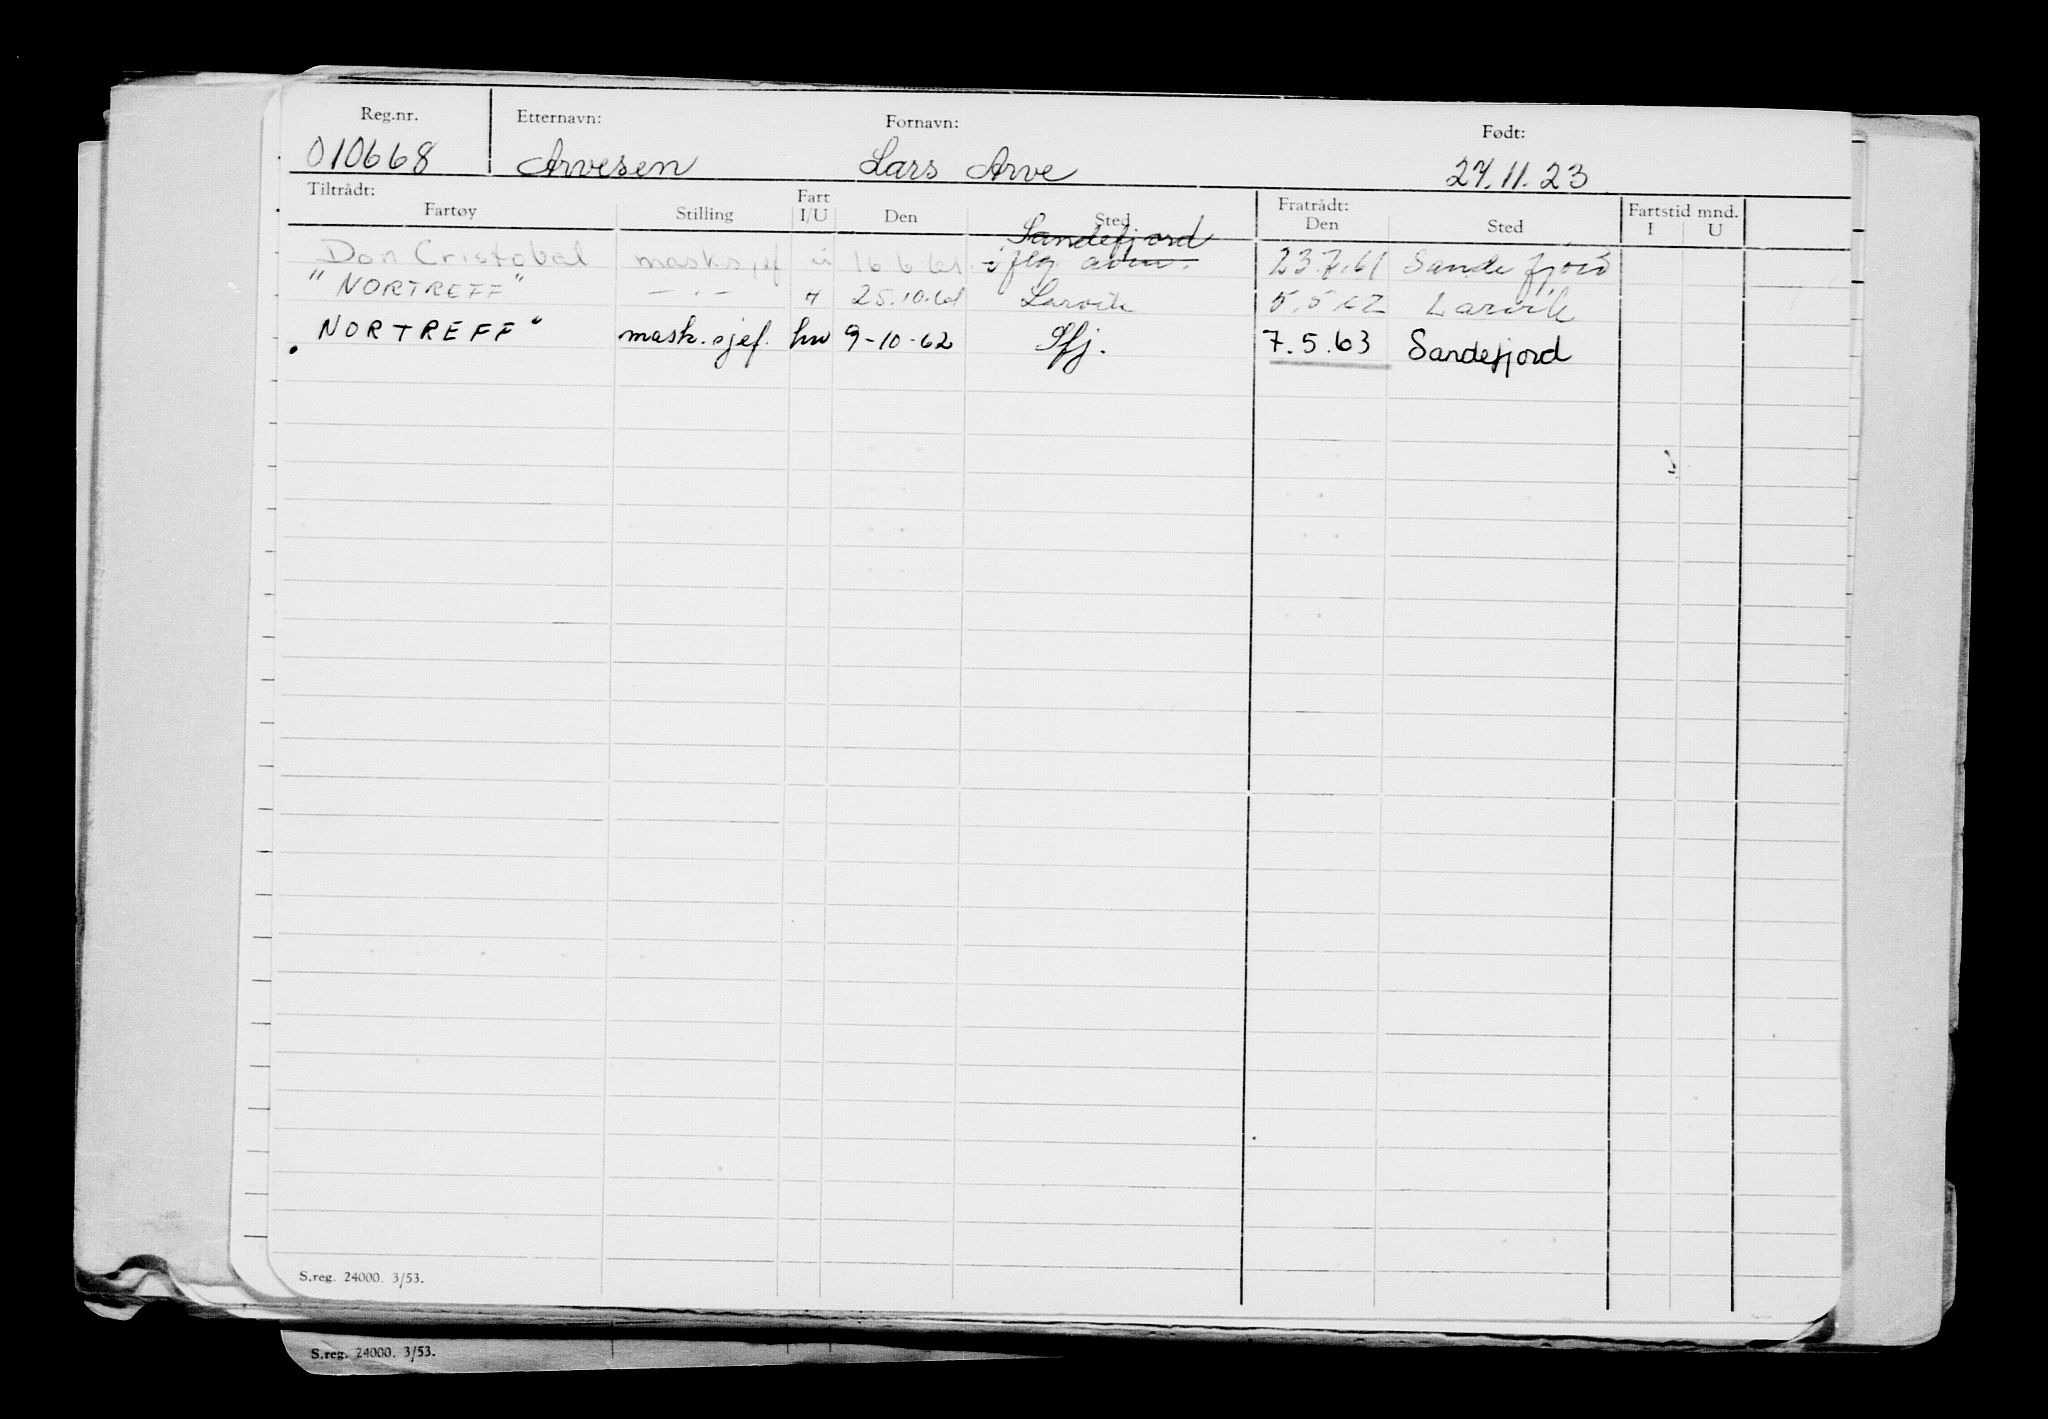 Reg.nr. Etternavn: Fornavn: Født:
010668 Arvesen Lars Arve 27.11.23
Tiltrådt: Fart Fratrådt: Fartstid mnd.
Fartøy Stilling I/U Den Sted Den Sted I U
Sandefjord
Don Cristobal mask.sjef u 16.6.61. iflg. 23.7.61 Sandefjord
"NORTREFF" — . — " 25.10.61 Larvik 5.5.62 Larvik
NORTREFF" mask.sjef. hv 9-10-62 Sfj. 7.5.63 Sandefjord
S.reg. 24000. 3/53.
S.reg. 24000. 3/53.